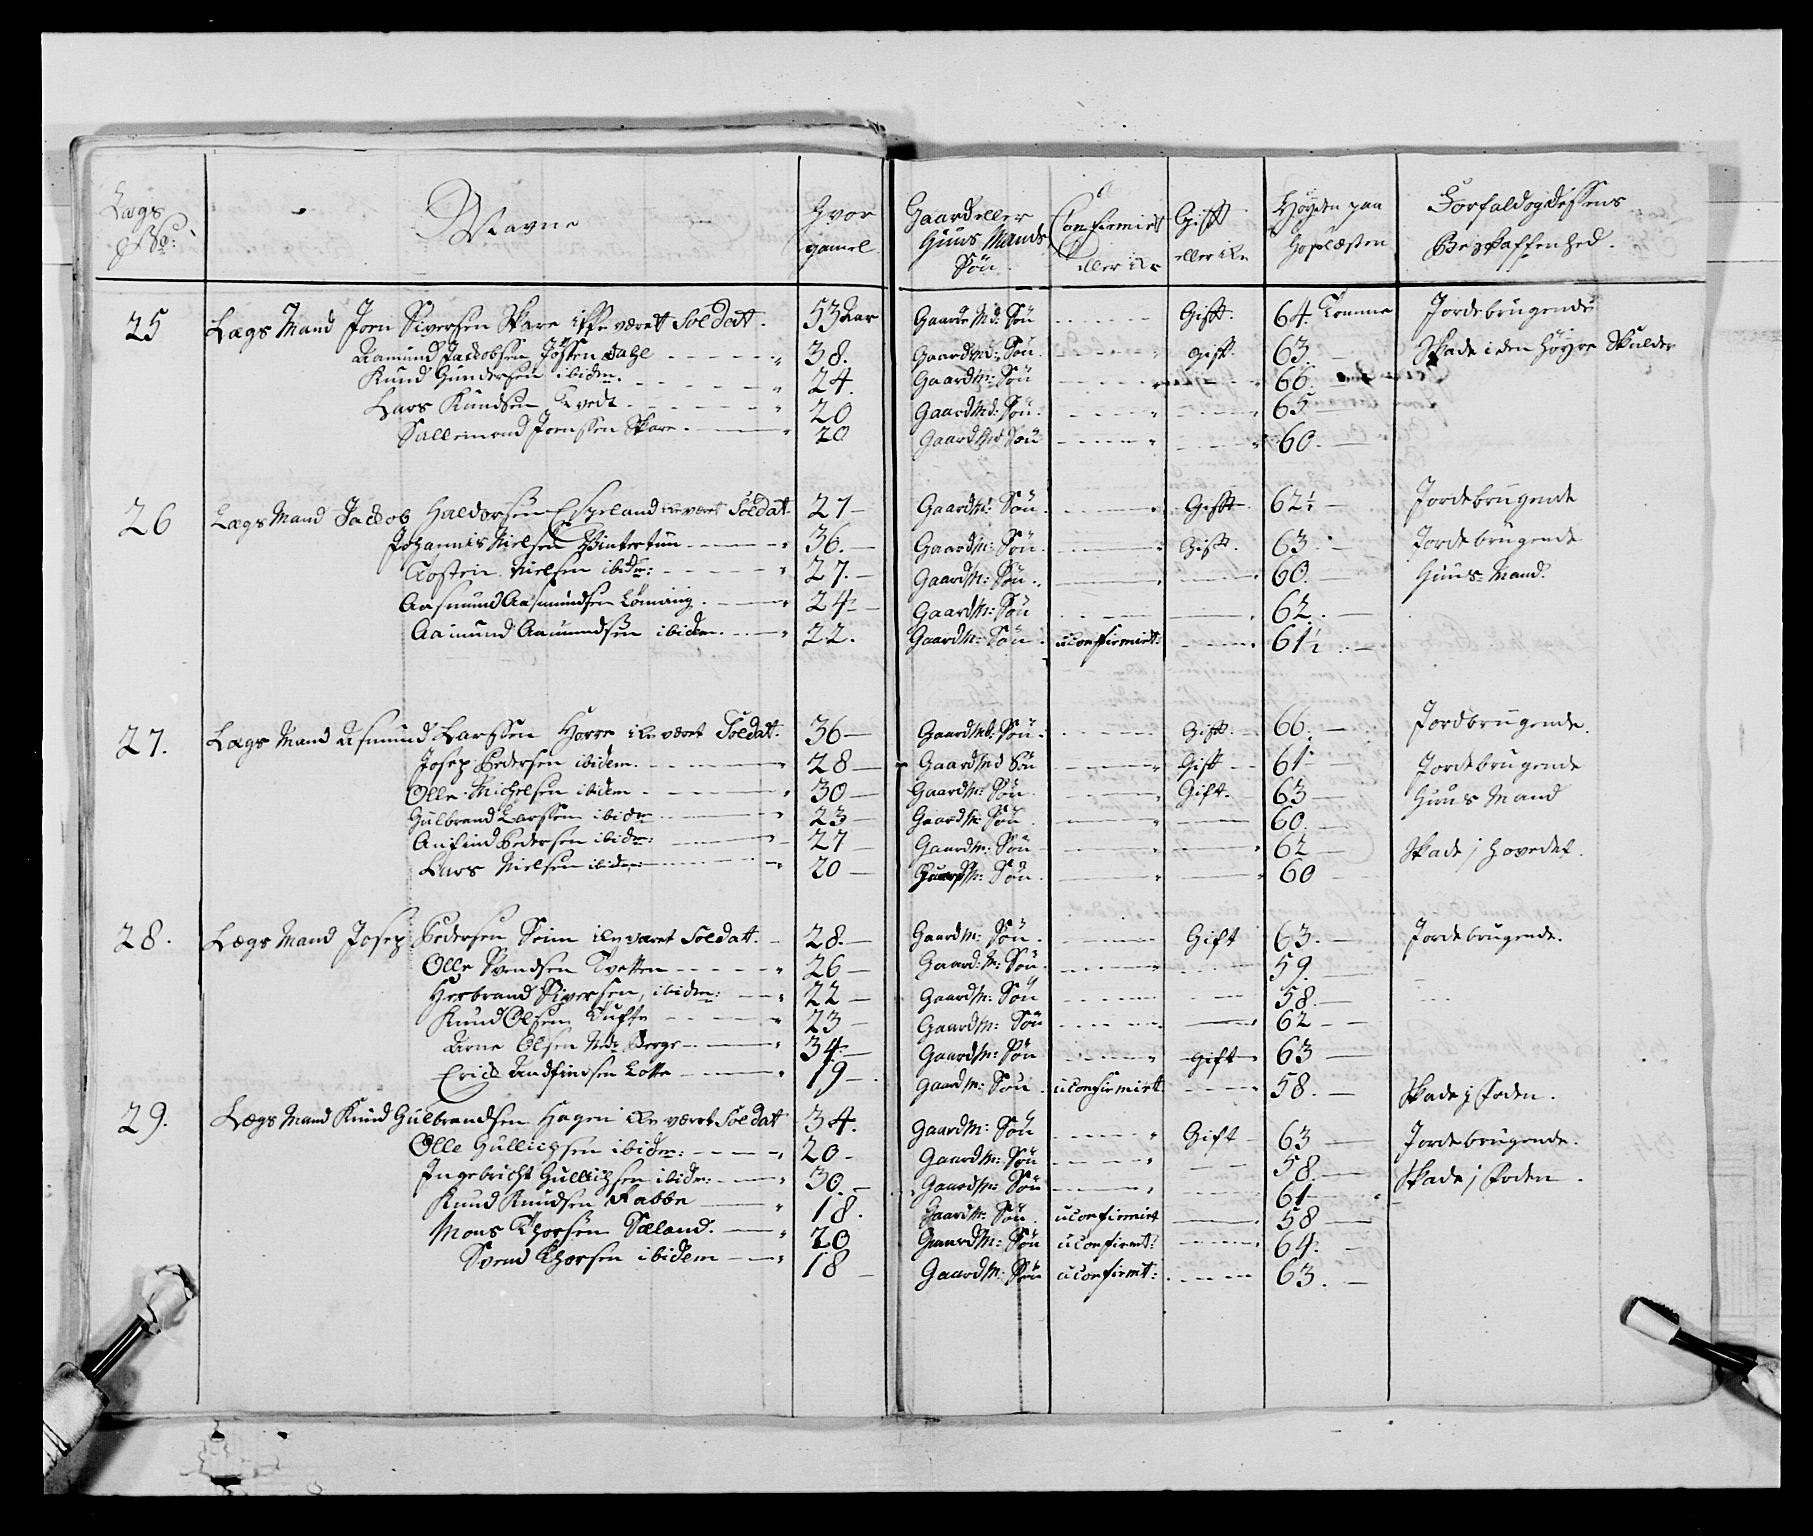 Lægs No: Navne Hvor gamel. Gaard eller Huus Mands Søn. Confirmirt eller ike Gifft eller ike Høyden paa Hosslæsten Forfald og dessens Beskaffenhed.
25 Lægs Mand Joen Siversen Skare ikke været Soldat. 53 Aar Gaarde Md: Søn Gifft. 64. Tomme Jordebrugende
Aamund Jackobsen Jøsten dahl 38. Gaardmd: Søn. Gift. 63. Skade i den Høyre Skulder
Knud Gundersen ibidem. 24. Gaardm: Søn 66.
Lars Knudsen Tvedt 20 Gaardmd: Søn. 65
Sallemond Joenssen Skare. 20 Gaardmd Søn 60.
26 Lægs Mand Jackob Haldorsen Espeland ike været Soldat 27 Gaardmd: Søn. Gifft 62½ Jordebrugende
Johannis Nielsen Wintertun 36. Gaardm: Søn. Gifft. 63. Jordebrugende
Tosten Nielsen ibidm: 27. Gaardm: Søn. 60. Huus-Mand.
Aasmund Aasmundsen Lømaing. 24 Gaardm: Søn 62.
Aamund Aamundsen ibidem. 22. Gaardm: Søn. uconfirmirt: 61½
27. Lægs Mand Asmund Larssen Horre ike været Soldat. 36 Gaardmd: Søn. Gift. 66. Jordbrugende.
Josep Pedersen ibidem. 28 Gaardmd Søn Gift 61 Jordebrugende
Olle Michelsen ibidem 30 Gaardm: Søn. Gift. 63 Huus Mand
Gulbrand Larssen ibidm 23 Gaardm: Søn. 60.
Anfind Pedersen ibidm: 27 Gaardm: Søn 62 Skade j Hovedet.
Lars Nielsen ibidm: 20 M: Søn. 60
28. Lægs Mand Josep Pedersen Seim ike været Soldatt. 28. Gaardm: Søn. Gift 63. Jordebrugende.
Olle Svendsen Tvetten 26 Gaard: m: Søn. 59.
Herbrand Siversen, ibidm: 22 Gaardm: Søn 58.
Knud Olsen Tufte 23 Gaardm: Søn 62
Arne Olsen Nedr Berge 34. Gaardm: Søn Gift 63
Erick Andfindsen Lotte 19 Gaardm: Søn. uconfirmirt 58. Skade j Foden.
29. Lægs Mand Knud Gulbrandsen Hagen ike været Soldat 34. Gaardm: Søn Gift 63 Jordebrugende.
Olle Gullichsen ibidm: 20 Gaardm: Søn 58. Skade j Foden.
Ingebricht Gullichsen ibidm: 30. Gaardm: Søn 61
Knud Knudsen Rabbe 18. Gaardm: Søn. uconfirmirt 58
Mons Thorsen Sæland. 20 Gaardm: Søn uconfirmt: 64.
Svend Thorsen ibidem 18 Gaardm: Søn uconfirmt: 63.